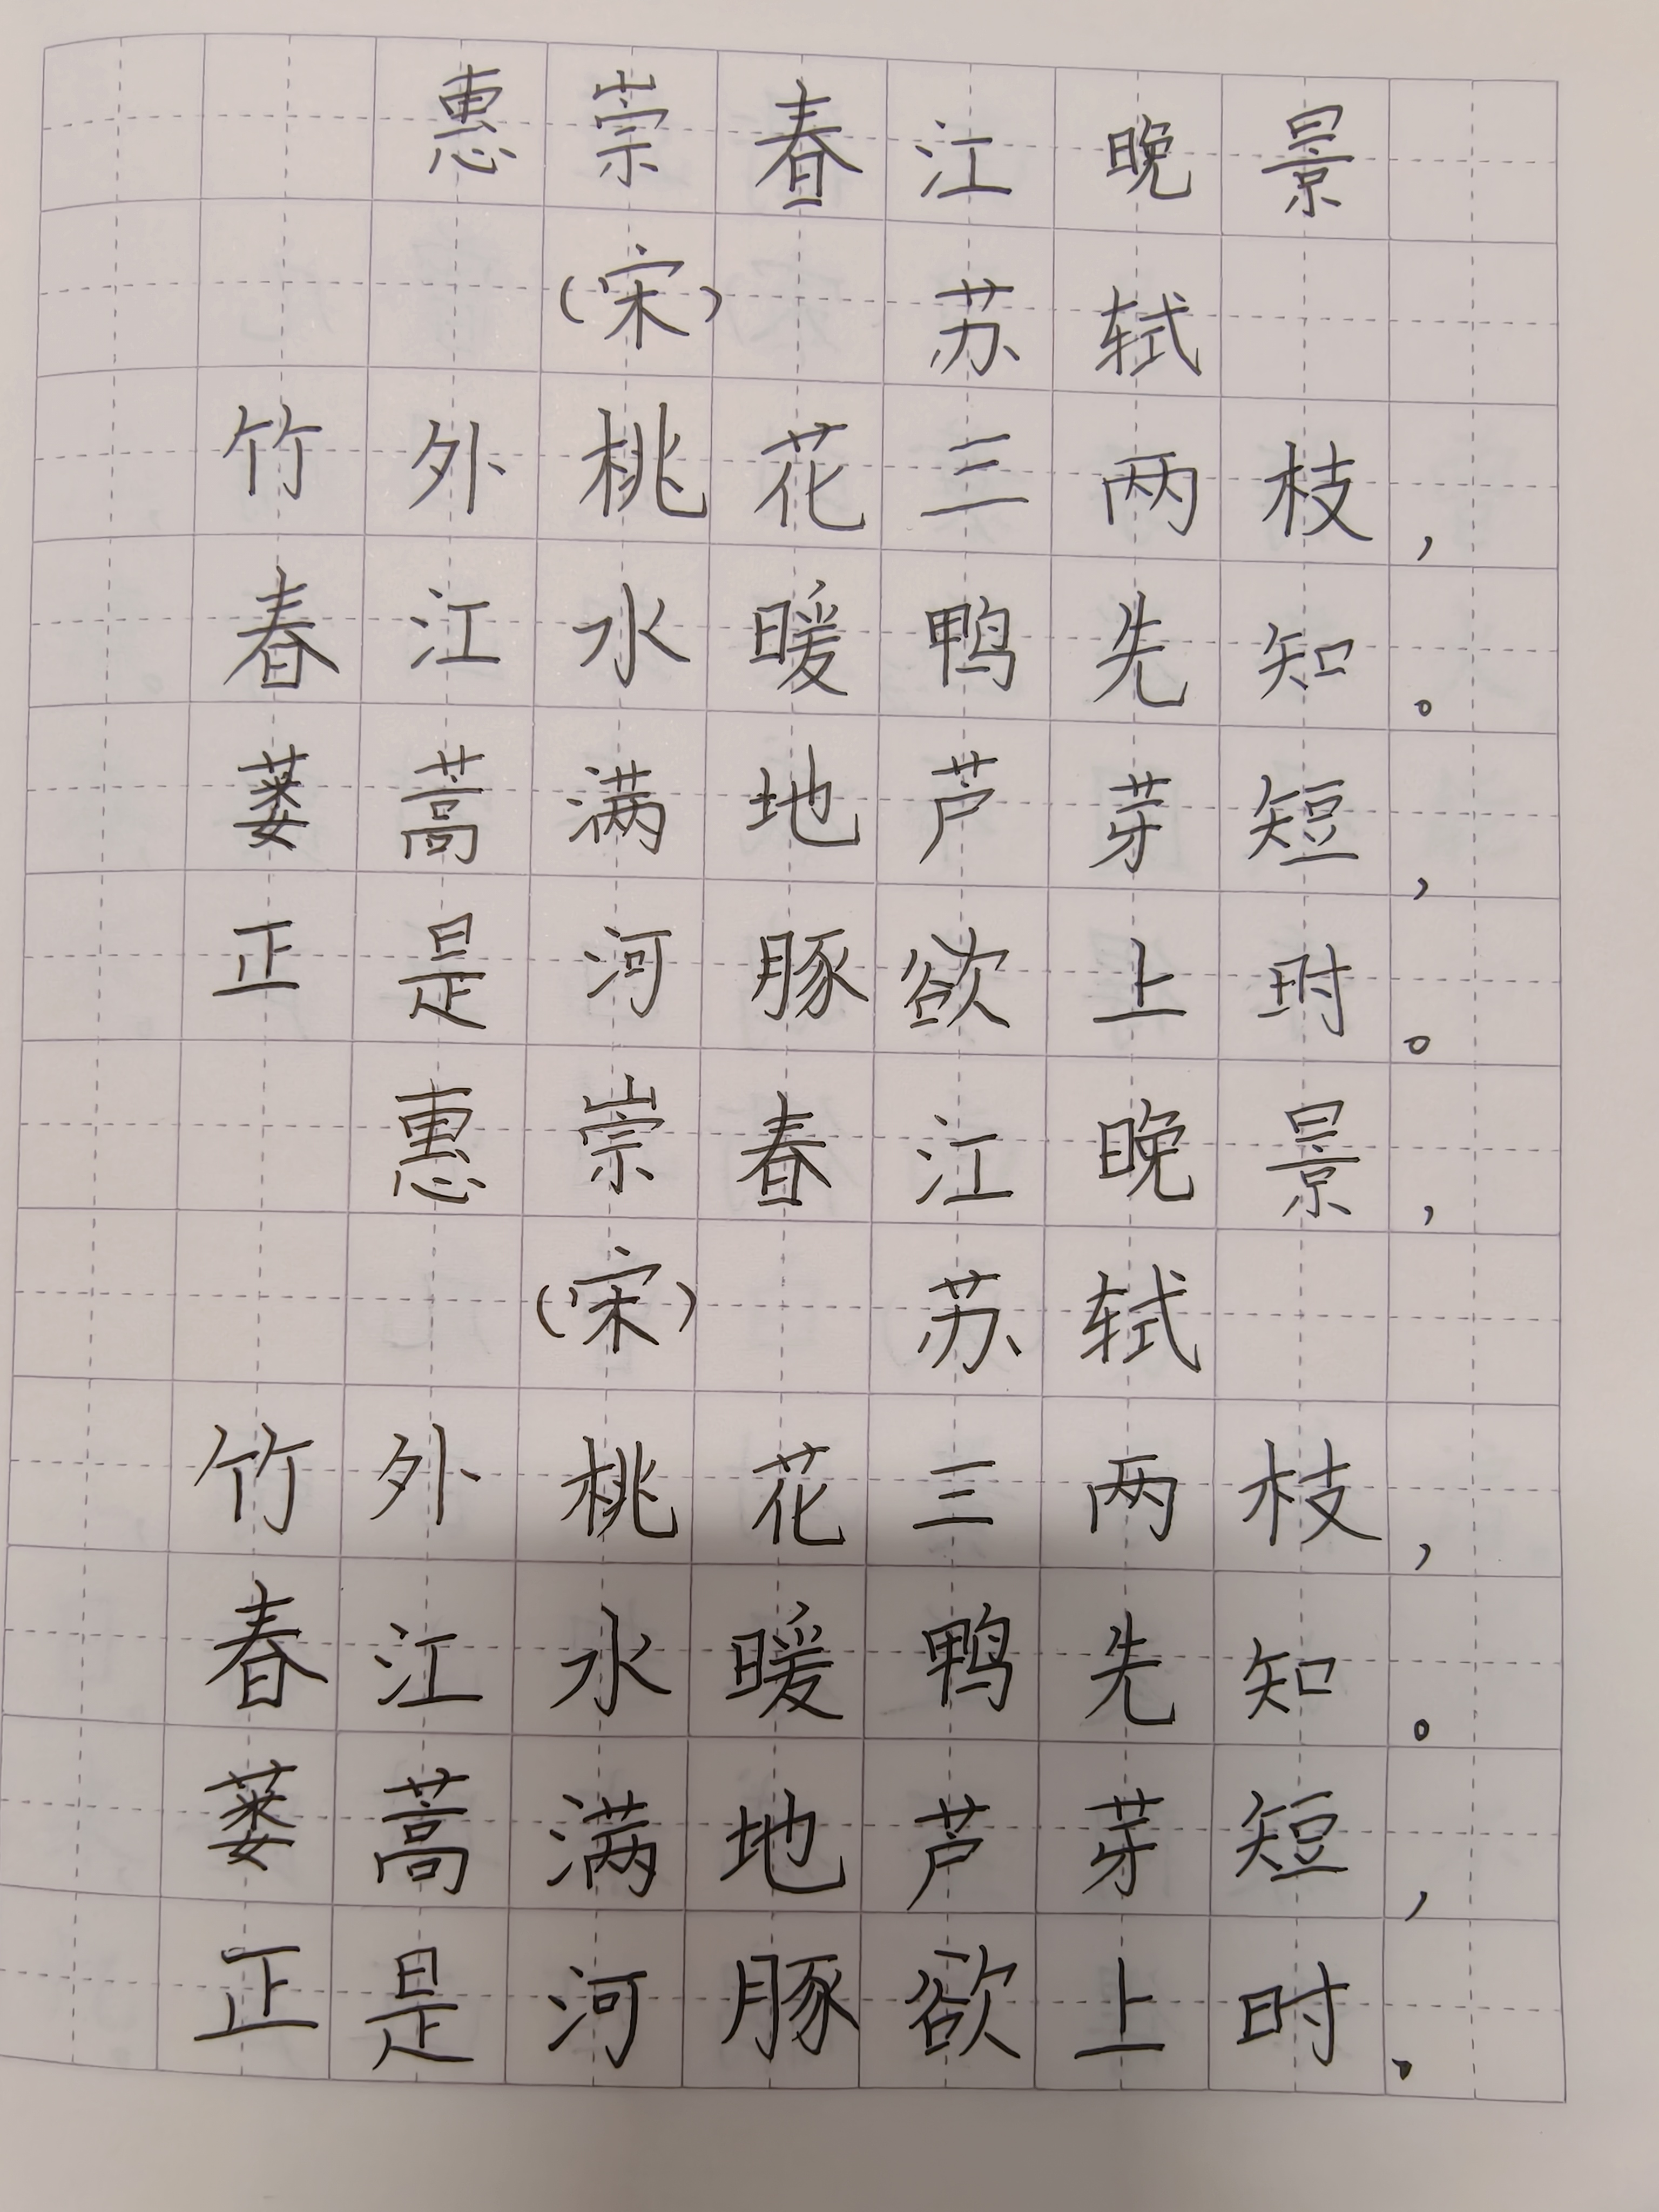 惠崇春江晚景
(宋) 苏轼
竹外桃花三两枝,
春江水暖鸭先知。
蒌蒿满地芦芽短,
正是河豚欲上时。
惠崇春江晚景,
(宋) 苏轼
竹外桃花三两枝,
春江水暖鸭先知。
蒌蒿满地芦芽短,
正是河豚欲上时.